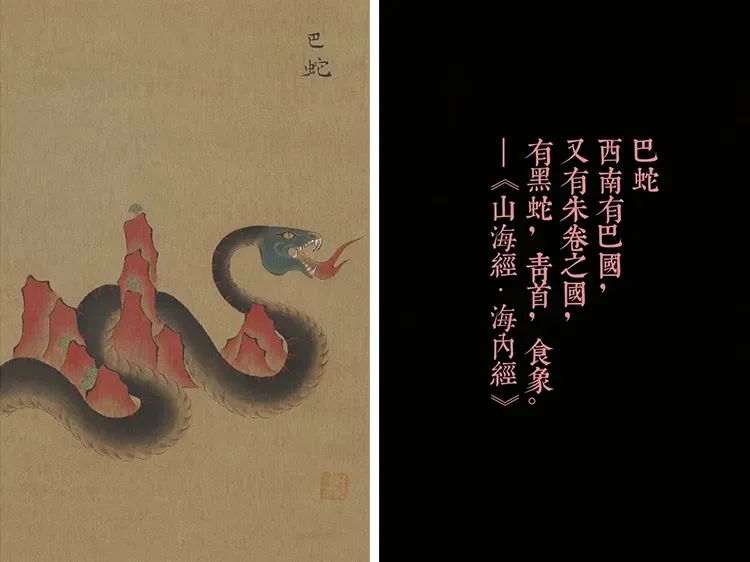 巴
蛇
巴蛇
西南有巴國，
又有朱卷之國，
有黑蛇，青首，食象。
—《山海經·海內經》